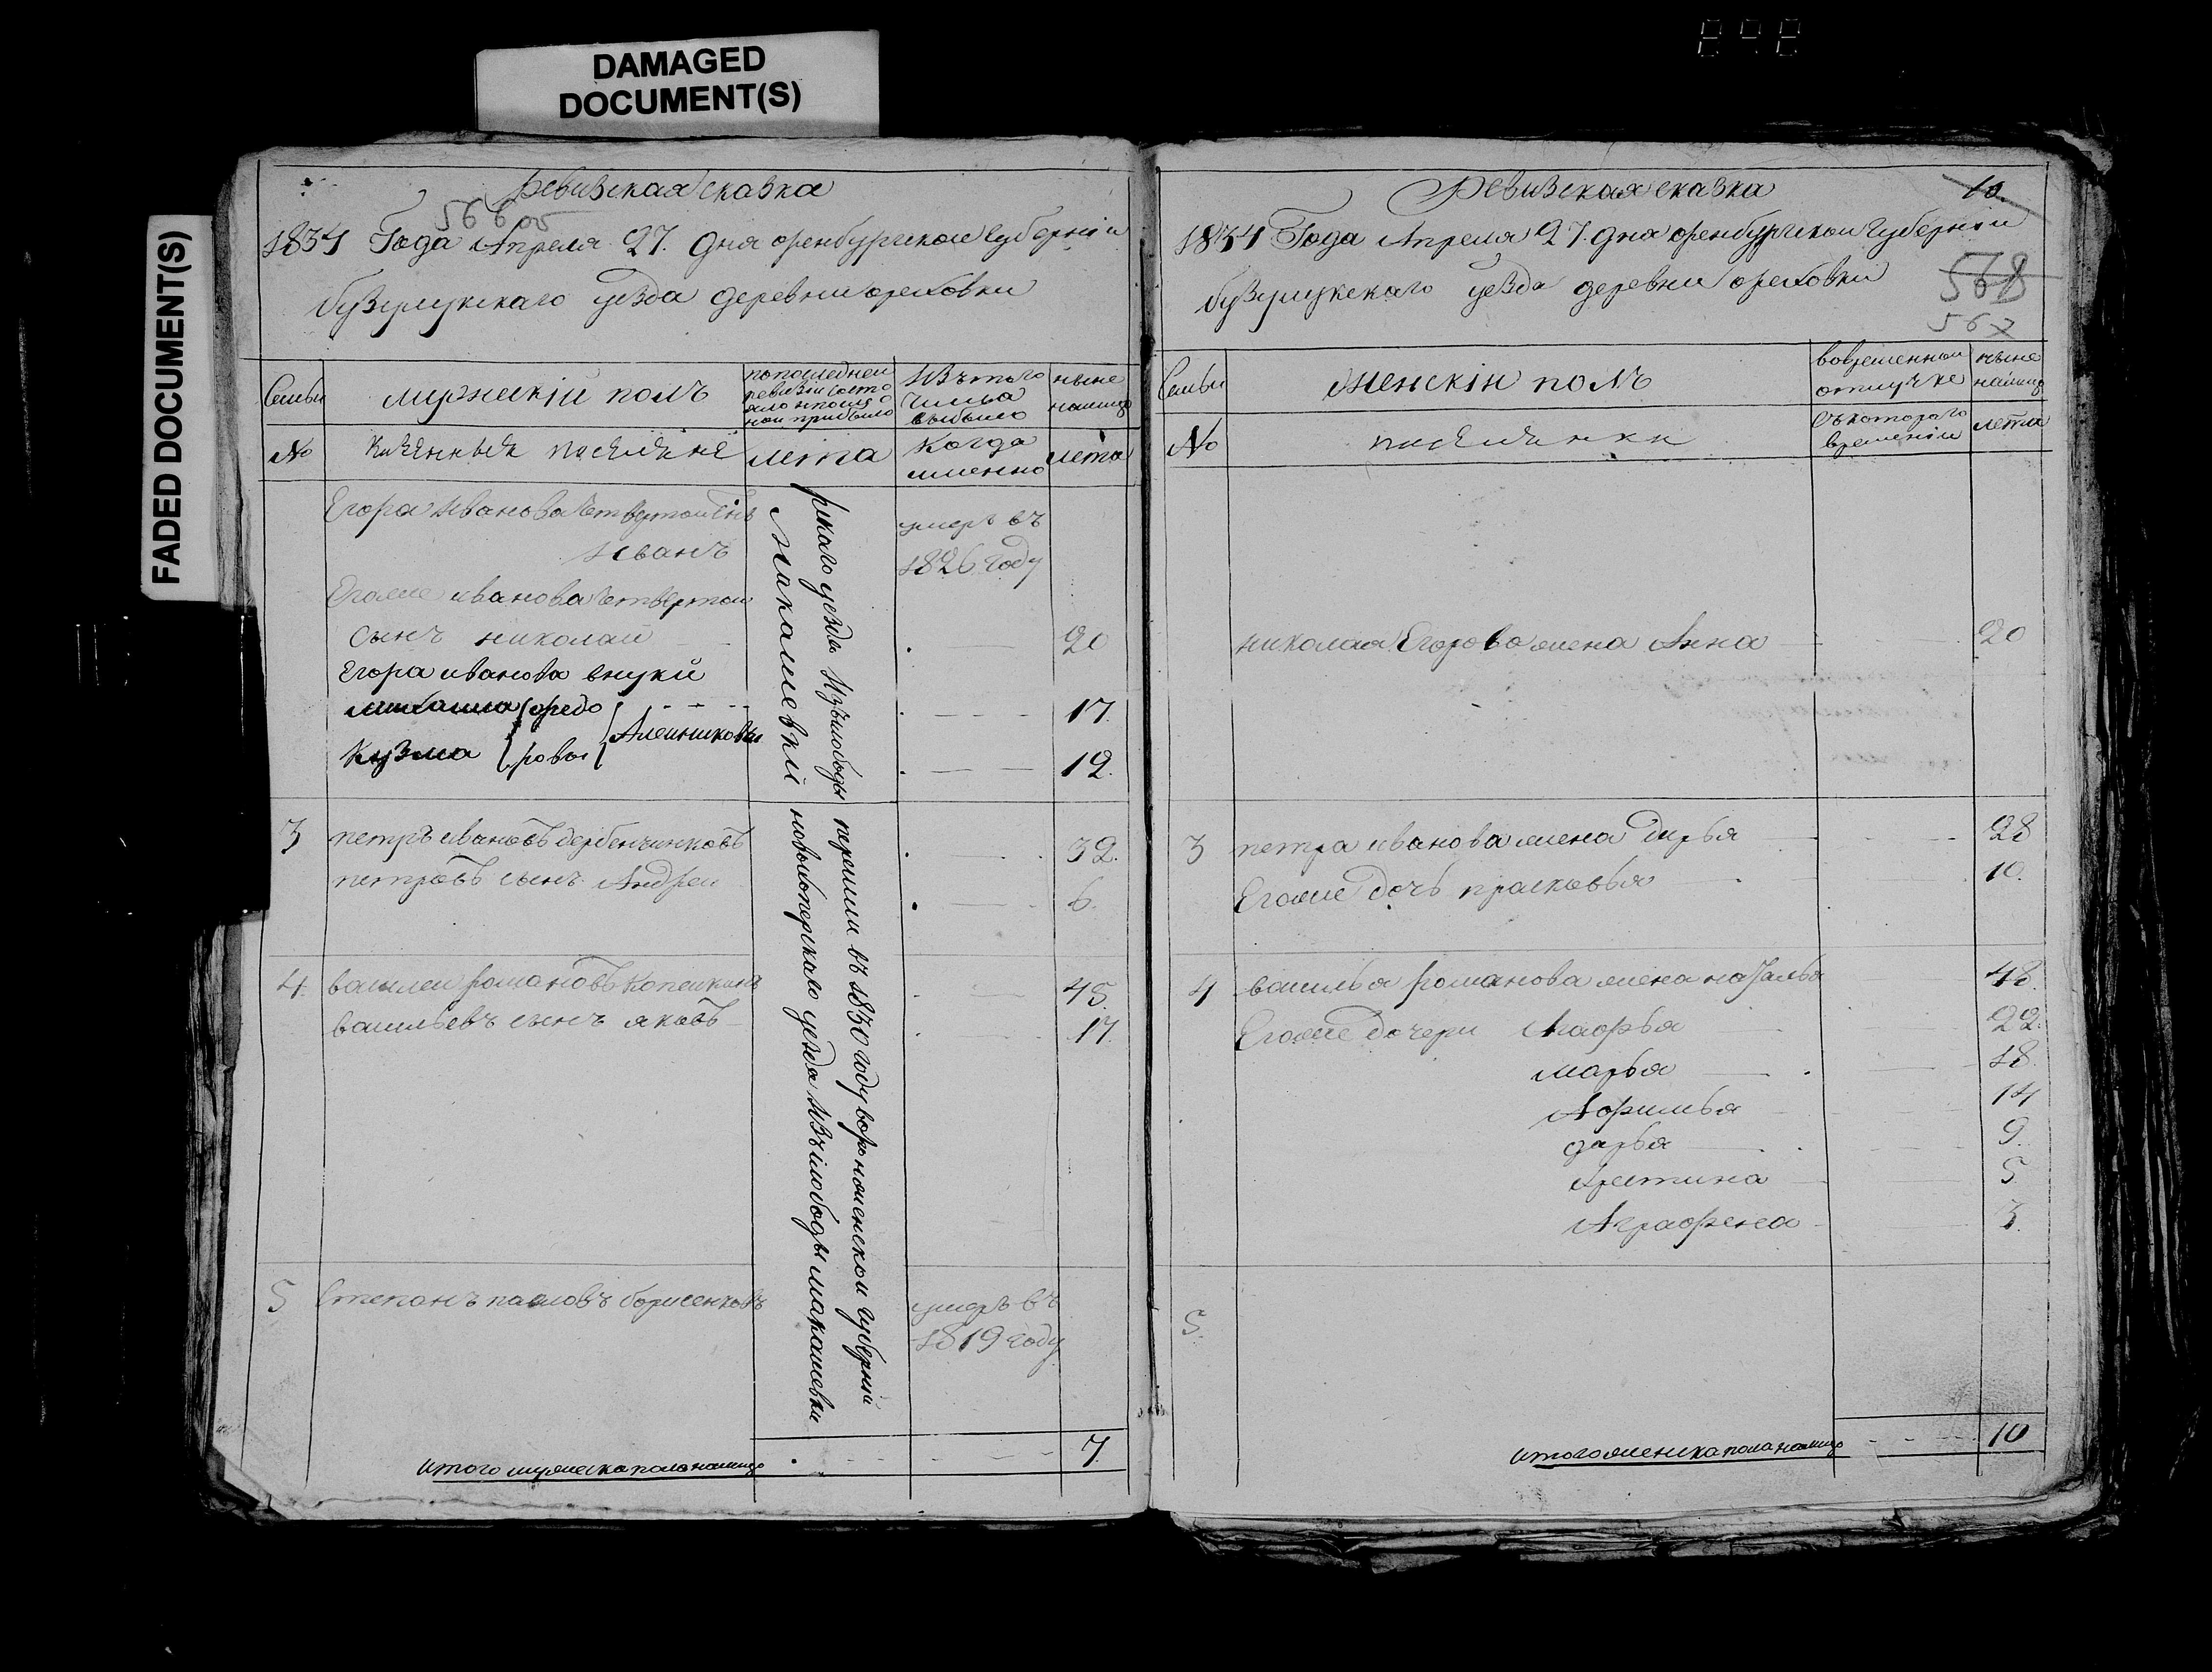 DAMAGED
DOCUMENT(S)
FADED DOCUMENT(S)
Ревизская сказка
566 об
1834 Года Апреля 27. дня оренбургской Губерніи
бузулукскаго уезда деревни ореховки
Семьи
мужескій полъ
по последней
ревизіи состо
яло и после о
ной прибыло
Изъ того
числа
выбыло
ныне
налицо
№
казенныя поселяне
лета
Когда
именно
лета
Егора Иванова четвертой сынъ
Иванъ
умеръ въ
1826 году
Егоже иванова четвертои
сынъ николаи
20
Егора иванова внуки
михаила федо
17.
Кузма ровы Алеиниковы
12.
3 петръ ивановъ дербенчинковъ 32.
петровъ сынъ Андреи 6.
4. василеи романовъ Копеикинъ 45.
васильевъ сынъ яковъ 17.
5 Степанъ павловъ борисенковъ
умеръ въ
1819 году
рскаго уезда Изъ слободы
макашевки
перешли въ 1830 году воронежской губерніи
новохоперскаго уезда Изъ слободы макашевки
итого мужеска пола налицо 7.
Ревизская сказка
10.
1834 Года Апреля 27. дня оренбургской Губерніи
бузулукскаго уезда деревни ореховки
568
567
Семьи
Женскій полъ
во временной
отлучке
ныне
налицо
№
поселянки
съ котораго
времени
лета
николая Егорова жена Анна 20
3 петра иванова жена дарья 28
Егоже дочь прасковья 10.
4 василья романова жена наталья 48.
Егоже дочери Марфа 22.
марья 18.
Афимья 14
дарья 9.
Христина 5
Аграфена 3.
5.
итого женска пола налицо 10